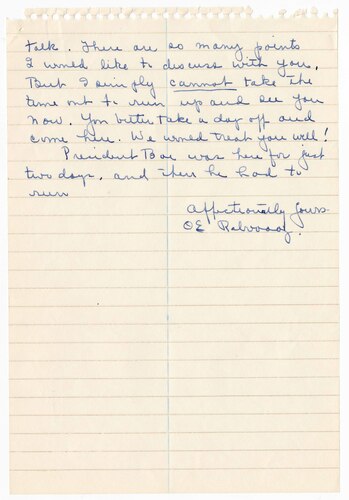 talk. There are so many points
I would like to discuss with you,
But I simply cannot take the
time out to run up and see you
now. You better take a day off and
come here. We would treat you well!
President Boe was here for just
two days, and then he had to
run
Affectionately Yours
OE Rolvaag.